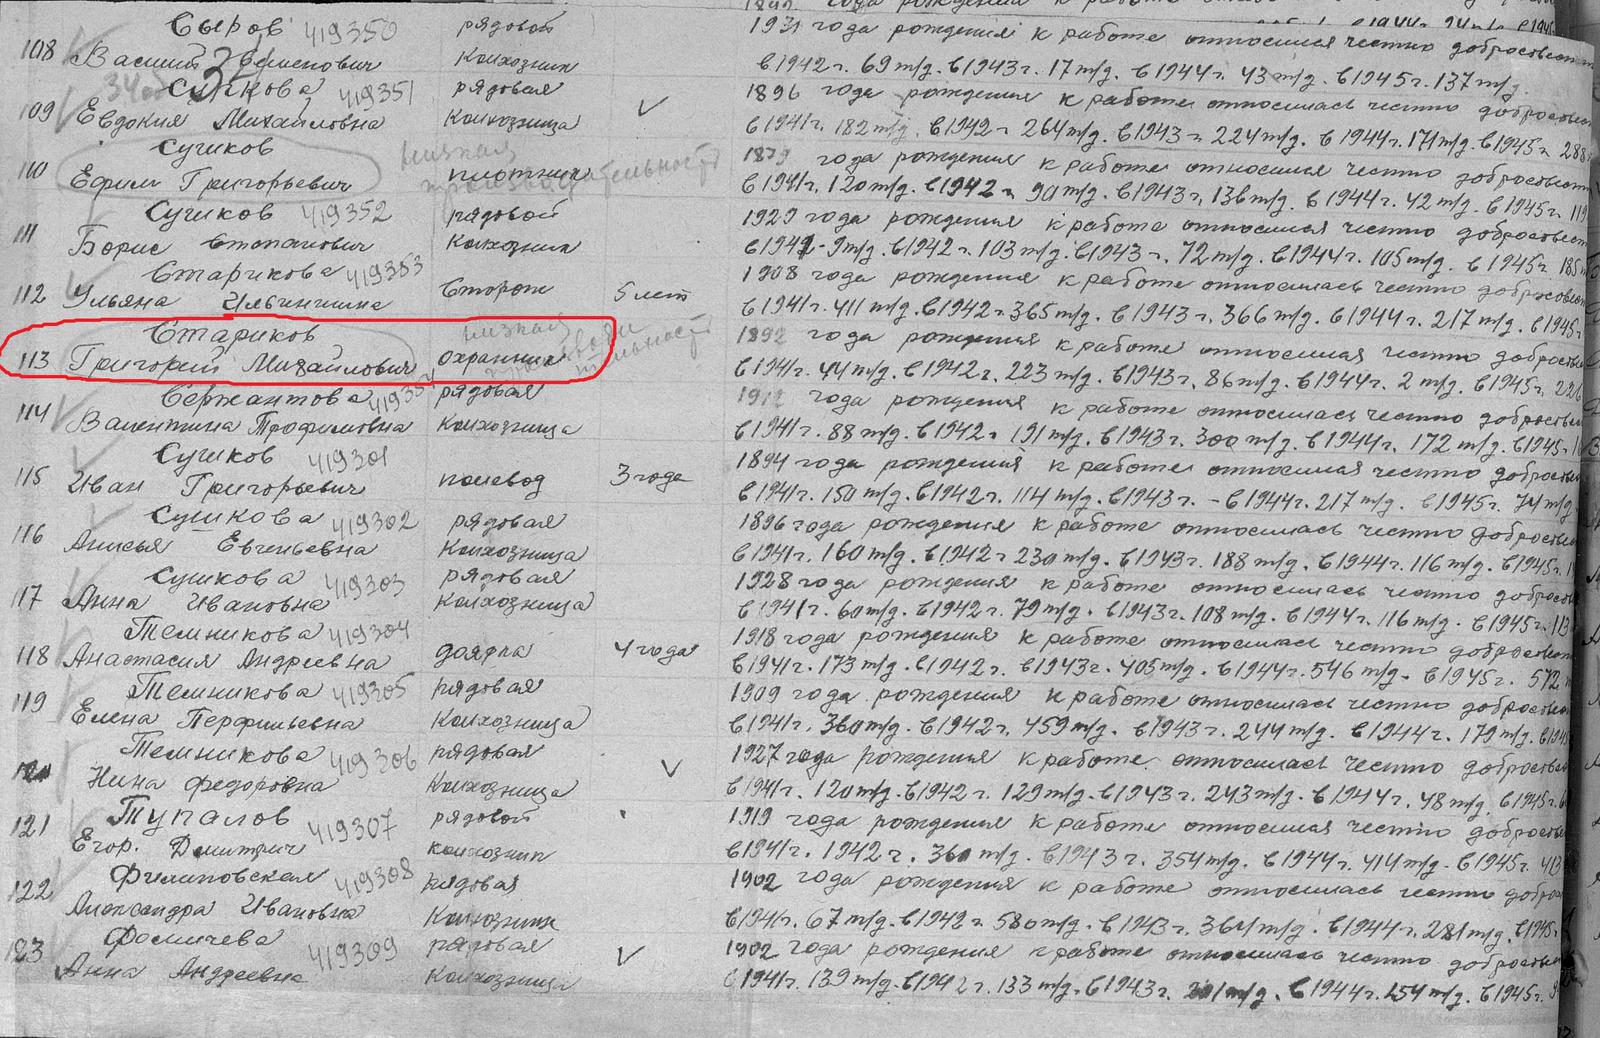 Сыров 419350 рядовой 1931 года рождения к работе относился честно добросовестно
108 Василий Семенович колхозник в 1942 г. 69 т/д. в 1943 г. 17 т/д. в 1944 г. 43 т/д. в 1945 г. 137 т/д.
Сучкова 419351 рядовая 1896 года рождения к работе относилась честно добросовестно
109 Евдокия Михайловна колхозница в 1941 г. 182 т/д. в 1942 г. 264 т/д. в 1943 г. 224 т/д. в 1944 г. 171 т/д. в 1945 г. 288
Сучков низкая 1879 года рождения к работе относился честно добросовестно
110 Ефим Григорьевич плотник производительность в 1941 г. 120 т/д. в 1942 г. 90 т/д. в 1943 г. 136 т/д. в 1944 г. 42 т/д. в 1945 г. 119
Сучков 419352 рядовой 1929 года рождения к работе относился честно добросовестно
111 Борис Степанович колхозник в 1941 - 9 т/д. в 1942 г. 103 т/д. в 1943 г. 72 т/д. в 1944 г. 105 т/д. в 1945 г. 185 т/д
Старикова 419353 1908 года рождения к работе относилась честно добросовестно
112 Ульяна Ильинична Сторож 5 лет в 1941 г. 411 т/д. в 1942 г. 365 т/д. в 1943 г. 366 т/д. в 1944 г. 217 т/д. в 1945 г.
Стариков низкая 1892 года рождения к работе относился честно добросовестно
113 Григорий Михайлович охранник в 1941 г. 44 т/д. в 1942 г. 223 т/д. в 1943 г. 86 т/д. в 1944 г. 2 т/д. в 1945 г. 226
Сержантова 419354 рядовая 1912 года рождения к работе относилась честно добросовестно
114 Валентина Трофимовна колхозница в 1941 г. 88 т/д. в 1942 г. 191 т/д. в 1943 г. 300 т/д. в 1944 г. 172 т/д. в 1945 г.
Сучков 419301 1894 года рождения к работе относился честно добросовестно
115 Иван Григорьевич полевод 3 года в 1941 г. 150 т/д. в 1942 г. 114 т/д. в 1943 г. - в 1944 г. 217 т/д. в 1945 г. 74 т/д.
Сушкова 419302 рядовая 1896 года рождения к работе относилась честно добросовестно
116 Анисья Евгеньевна колхозница в 1941 г. 160 т/д. в 1942 г. 230 т/д. в 1943 г. 188 т/д. в 1944 г. 116 т/д. в 1945 г.
Сушкова 419303 рядовая 1928 года рождения к работе относилась честно добросовестно
117 Анна Ивановна колхозница в 1941 г. 60 т/д. в 1942 г. 79 т/д. в 1943 г. 108 т/д. в 1944 г. 116 т/д. в 1945 г. 113
Темникова 419304 1918 года рождения к работе относилась честно добросовестно
118 Анастасия Андреевна доярка 4 года в 1941 г. 173 т/д. в 1942 г. в 1943 г. 405 т/д. в 1944 г. 546 т/д. в 1945 г. 572
Темникова 419305 рядовая 1909 года рождения к работе относилась честно добросовестно
119 Елена Перфильевна колхозница в 1941 г. 360 т/д. в 1942 г. 459 т/д. в 1943 г. 244 т/д. в 1944 г. 179 т/д. в 1945
Темникова 419306 рядовая 1927 года рождения к работе относилась честно добросовестно
120 Нина Федоровна колхозница в 1941 г. 120 т/д. в 1942 г. 129 т/д. в 1943 г. 243 т/д. в 1944 г. 48 т/д. в 1945 г.
Тупалов 419307 рядовой 1919 года рождения к работе относился честно добросовестно
121 Егор. Дмитрич колхозник в 1941 г. 1942 г. 360 т/д. в 1943 г. 354 т/д. в 1944 г. 414 т/д. в 1945 г. 413
Филиповская 419308 рядовая 1902 года рождения к работе относилась честно добросо
122 Александра Ивановна колхозник в 1941 г. 67 т/д. в 1942 г. 580 т/д. в 1943 г. 364 т/д. в 1944 г. 281 т/д. в 1945 г.
Фомичева 419309 рядовая 1902 года рождения к работе относилась честно добросовестно
123 Анна Андреевна колхозница в 1941 г. 139 т/д. в 1942 г. 133 т/д. в 1943 г. 201 т/д. в 1944 г. 154 т/д. в 1945 г.